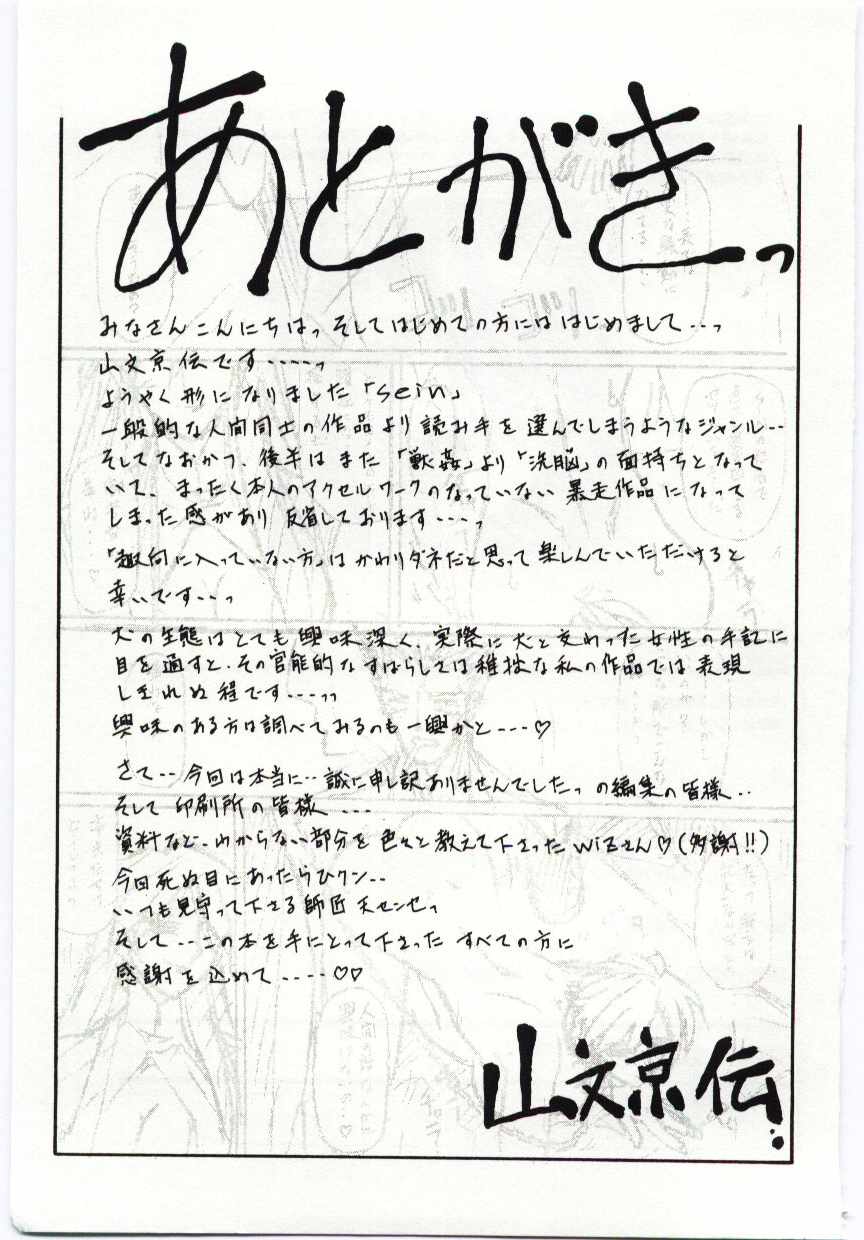 あとがきっ
みなさんこんにちはっ そしてはじめての方には はじめまして…っ
山文京伝です……っ
ようやく形になりました「sein」
一般的な人間同士の作品より読み手を選んでしまうようなジャンル‥
そしてなおかつ、後半はまた「獣姦」より「洗脳」の面持ちとなって
いて、まったく本人のアクセルワークのなっていない暴走作品になって
しまった感があり 反省しております…っ
「趣向に入っていない方」はかわりダネだと思って楽しんでいただけると
幸いです…っ
犬の生態はとても興味深く、実際に犬と交わった女性の手記に
目を通すと、その官能的なすばらしさは稚拙な私の作品では表現
しきれぬ程です…っっ
興味のある方は調べてみるのも一興かと…♡
さて‥今回は本当に‥誠に申し訳ありませんでしたっ の編集の皆様‥
そして 印刷所の皆様…
資料など、わからない部分を色々と教えて下さったwizさん♡(多謝!!)
今回死ぬ目にあったらひクン‥
いつも見守って下さる師匠 天センセっ
そして‥この本を手にとって下さった すべての方に
感謝を込めて……♡♡
山文京伝